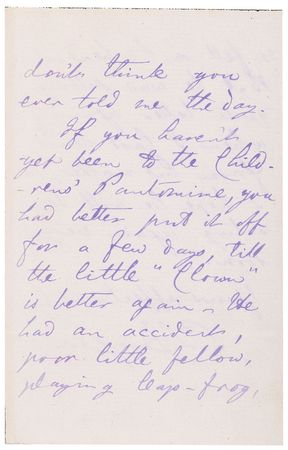 don't think you
ever told me the day.
If you haven't
yet been to the Child-
-rens' Pantomime, you
had better put it off
for a few days, till
the little "Clown"
is better again - He
had an accident,
poor little fellow,
playing leap-frog,